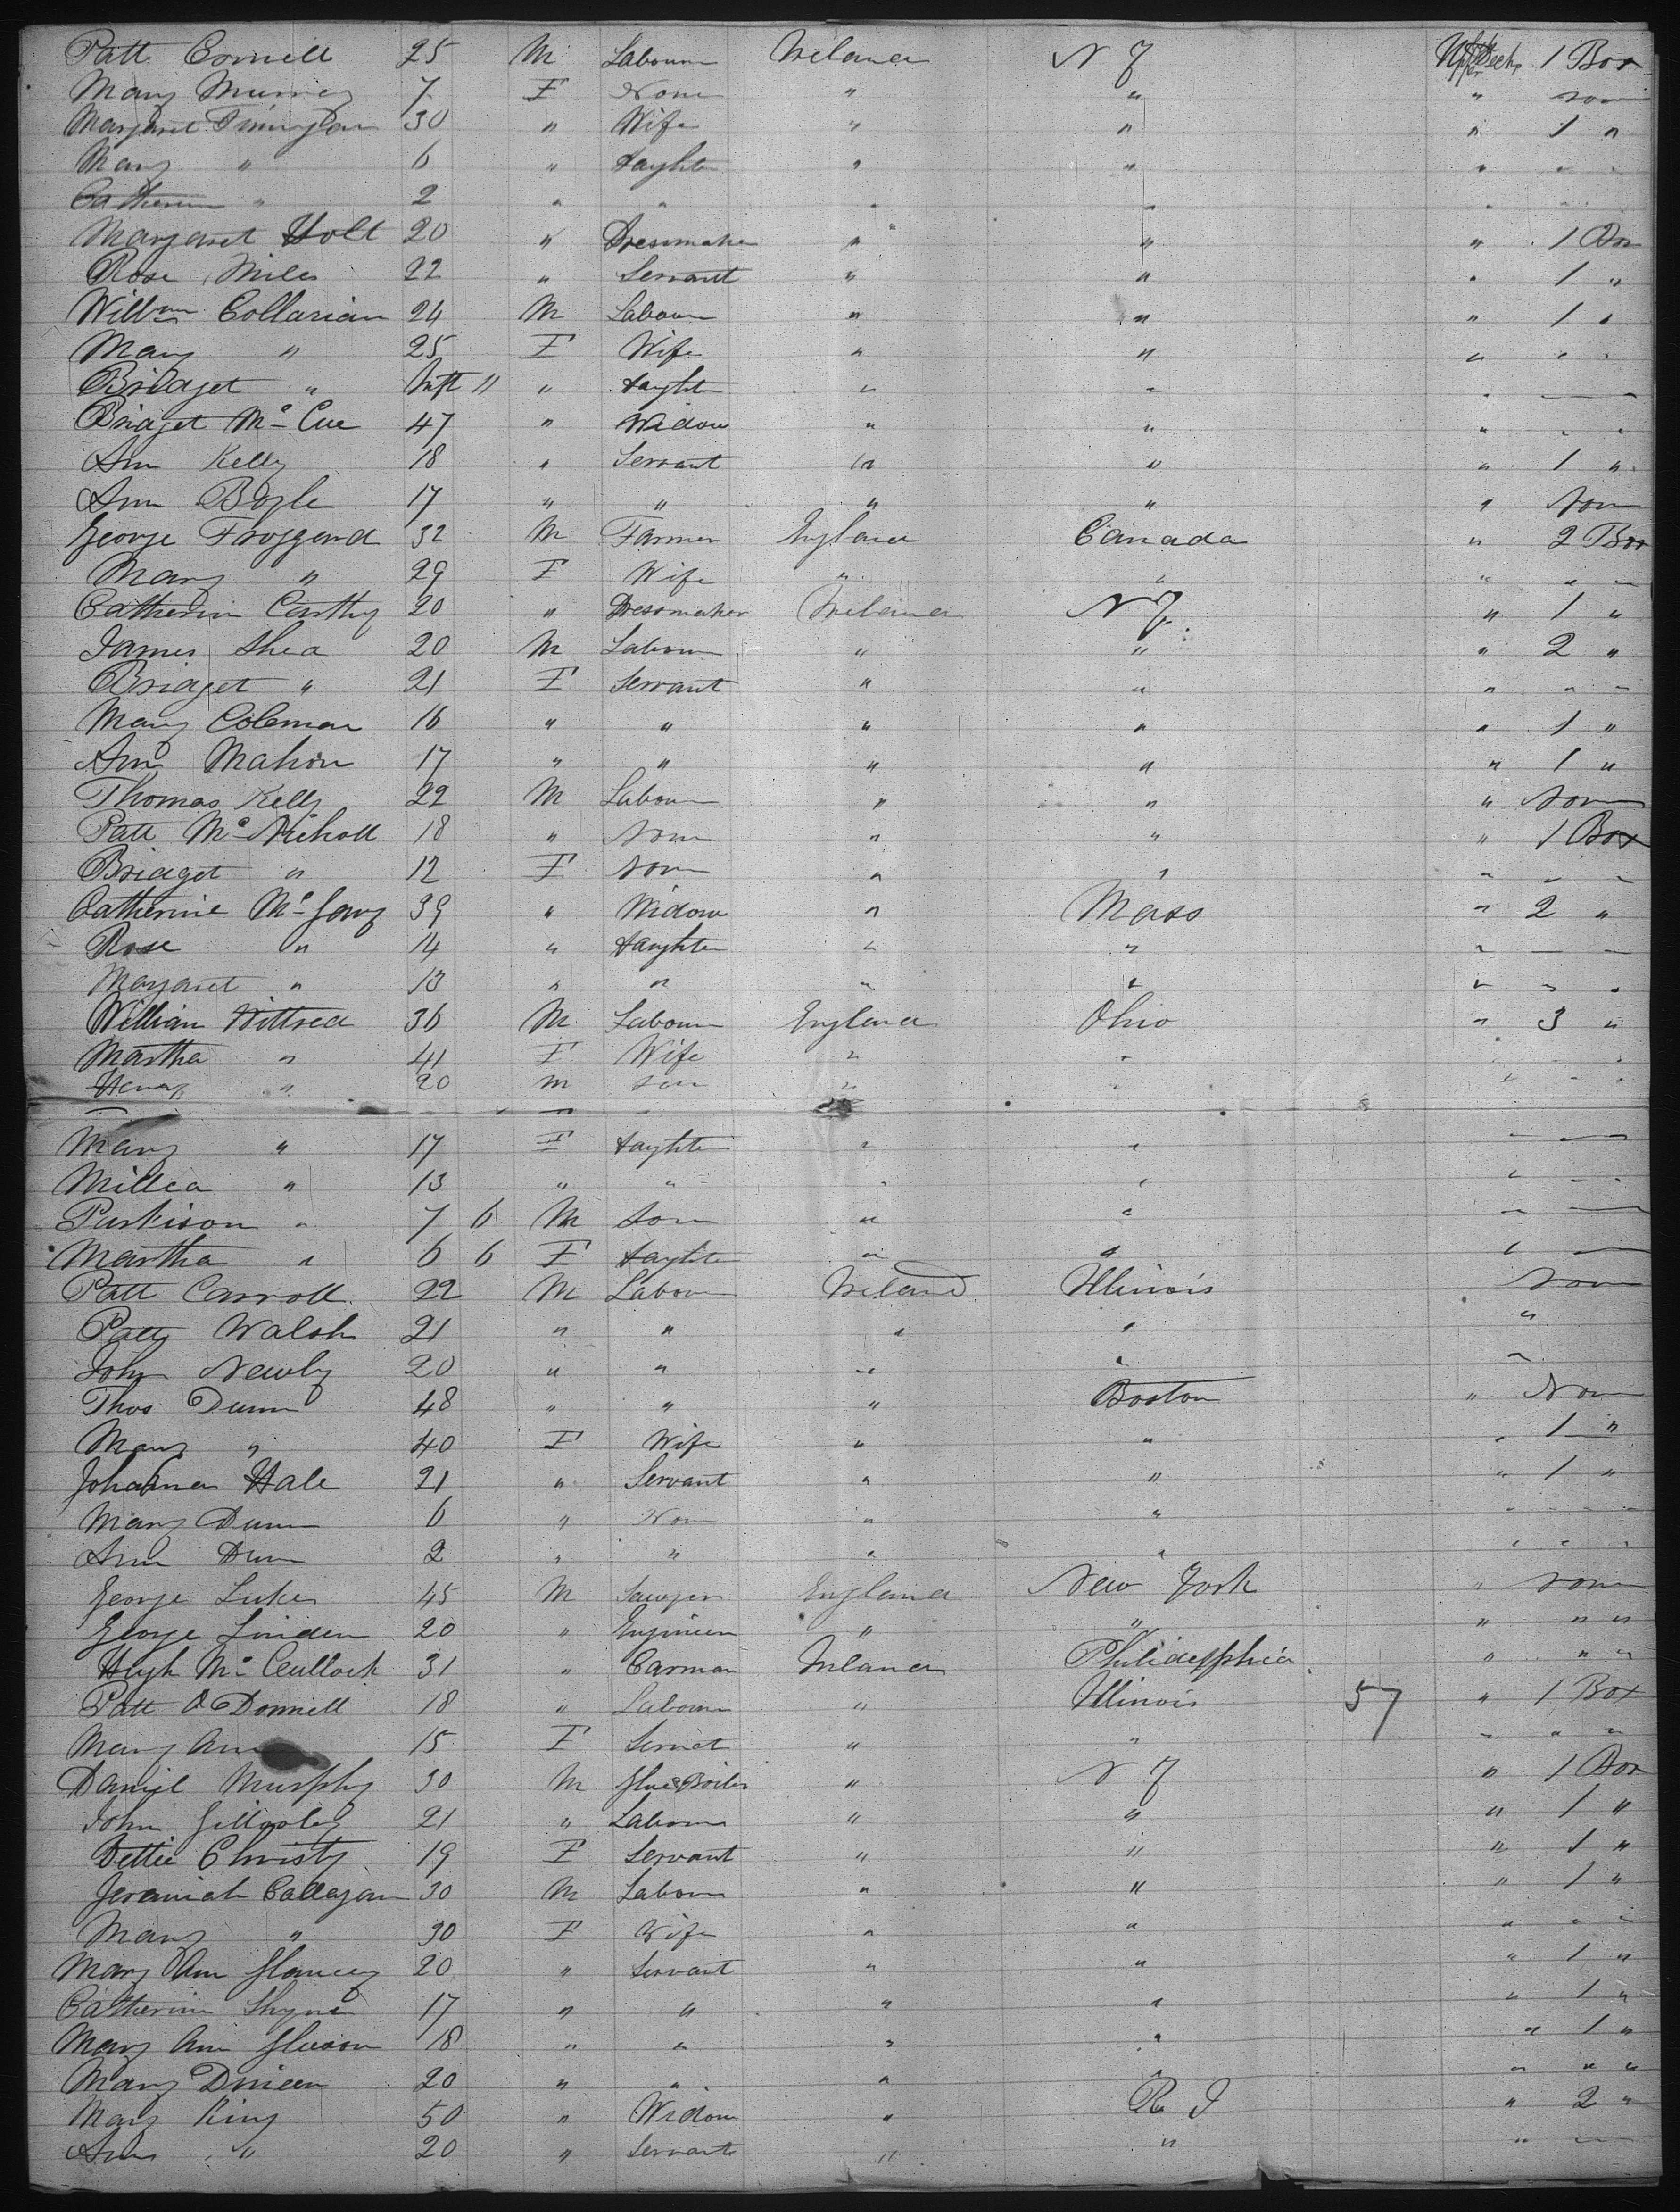 Patt Connell 25 M Labourer Ireland N Y Upper Deck 1 Box
Mary Murray 7 F None " " " none
Margaret Finnigan 30 " Wife " " " 1 "
Mary " 6 " daughter " " " " "
Catherine " 2 " " " " " " "
Margaret Holt 20 " Dressmaker " " " 1 Box
Rose Miles 22 " Servant " " " 1 "
Willm Collarian 24 M Labourer " " " 1 "
Mary " 25 F Wife " " " " "
Bridget " Inft 11 " daughter " " " — —
Bridget Mc Cue 47 " Widow " " " " "
Ann Kelly 18 " Servant " " " 1 "
Ann Boyle 17 " " " " " none
George Froggend 32 M Farmer England Canada " 2 Box
Mary " 29 F Wife " " " " "
Catherin Carthy 20 " Dressmaker Ireland N Y " 1 "
James Shea 20 M Labourer " " " 2 "
Bridget " 21 F Servant " " " " "
Mary Coleman 16 " " " " " 1 "
Ann Mahon 17 " " " " " 1 "
Thomas Kelly 22 M Labourer " " " none
Patt Mc Nicholl 18 " none " " " 1 Box
Bridget " 12 F none " " " " "
Catherine Mc 39 " Widow " Mass " 2 "
Rose " 14 " daughter " " " — —
Margaret " 13 " " " " " " "
William Wittred 36 M Labourer England Ohio " 3 "
Martha " 41 F Wife " " " " "
Henry " 20 M son " " " " "
Mary " 17 F daughter " " " —
Millea " 13 " " " " " " "
Parkison " 7 6 M son " " " —
Martha " 6 6 F daughter " " " —
Patt Carroll 22 M Labourer Ireland Illinois none
Patt Walsh 21 " " " " "
John Newby 20 " " " " "
Thos Dunn 48 " " " Boston " None
Mary " 40 F Wife " " " 1 "
Johanna Hale 21 " Servant " " " 1 "
Mary Dunn 6 " None " " " " "
Ann Dunn 2 " " " " " " "
George Luker 45 M Sawyer England New York " none
George Linden 20 " Engineer " " " " "
Hugh Mc Cullock 31 " Carman Ireland Philidelphia " " "
Patt O Donnell 18 " Labourer " Illinois 57 " 1 Box
Mary Ann 15 F Servant " " " " "
Daniel Murphy 30 M Glue Boiler " N Y " 1 Box
John Gillooley 21 " Labourer " " " 1 "
Bettie Christy 19 F Servant " " " 1 "
Jeramiah Callagan 30 M Labourer " " " 1 "
Mary " 30 F Wife " " " " "
Mary Ann Glancey 20 " Servant " " " 1 "
Catherine Shyne 17 " " " " " 1 "
Mary Ann Gleason 18 " " " " " 1 "
Mary Dineen 20 " " " " " " "
Mary King 50 " Widow " R I " 2 "
Ann " 20 " Servant " " " —